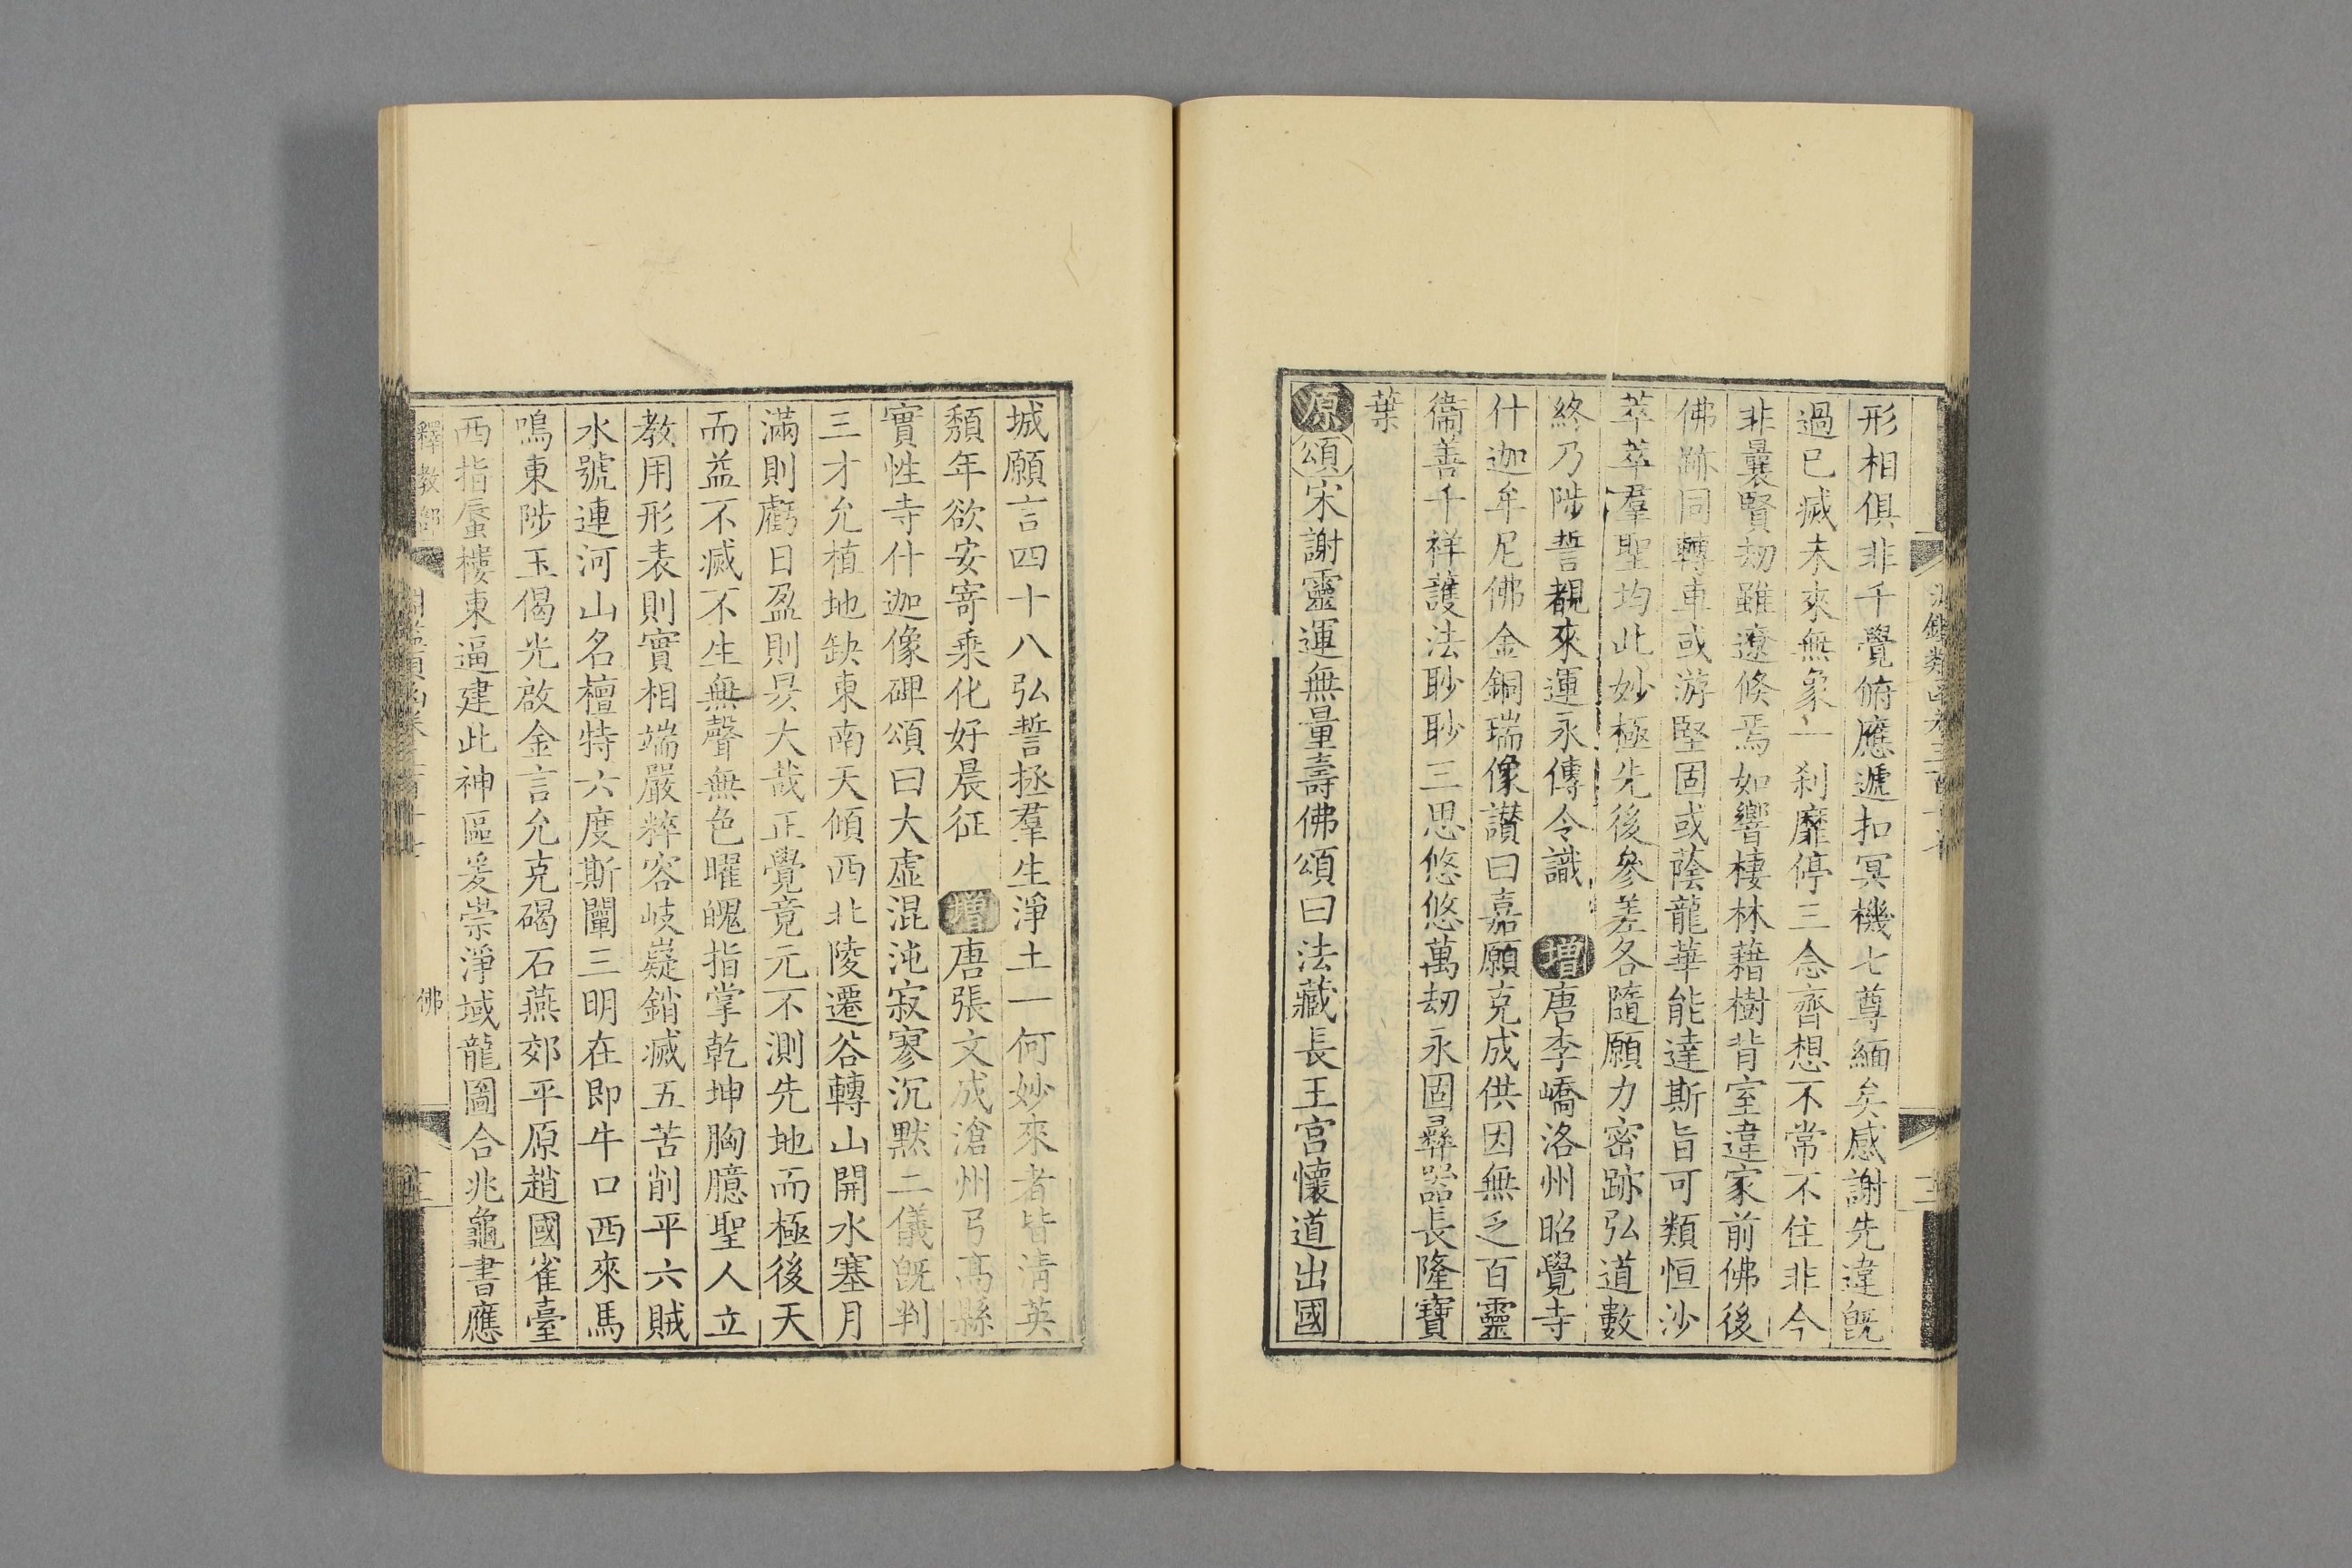 形相俱非千覺俯應遞扣冥機七尊緬矣感謝先違旣
過已滅未來無象一刹靡停三念齊想不常不住非今
非曩賢劫雖遼倐焉如響棲林藉樹背室違家前佛後
佛跡同轉車或游堅固或蔭龍華能達斯旨可類恒沙
萃萃羣聖均此妙極先後參差各隨願力密跡弘道數
終乃陟誓覩來運永傳今識 增唐李嶠洛州昭覺寺
什迦牟尼佛金銅瑞像讃曰嘉願克成供因無乏百靈
衞善千祥護法眇眇三思悠悠萬劫永固彞器長隆寶
葉
原頌宋謝靈運無量壽佛頌曰法藏長王宫懷道出國
城願言四十八弘誓拯羣生淨土一何妙來者皆清英
頽年欲安寄乘化好晨征 增唐張文成滄州弓高縣
實性寺什迦像碑頌曰大虛混沌寂寥沉黙二儀旣判
三才允植地缺東南天傾西北陵遷谷轉山開水塞月
滿則虧日盈則昃大哉正覺竟元不測先地而極後天
而益不滅不生無聲無色曜魄指掌乾坤胸臆聖人立
教用形表則實相端嚴粹容岐嶷銷滅五苦削平六賊
水號連河山名檀特六度斯闡三明在即牛口西來馬
鳴東陟玉偈光啟金言允克碣石燕郊平原趙國雀臺
西指蜃樓東逼建此神區爰崇淨域龍圖合兆龜書應
釋教部 佛